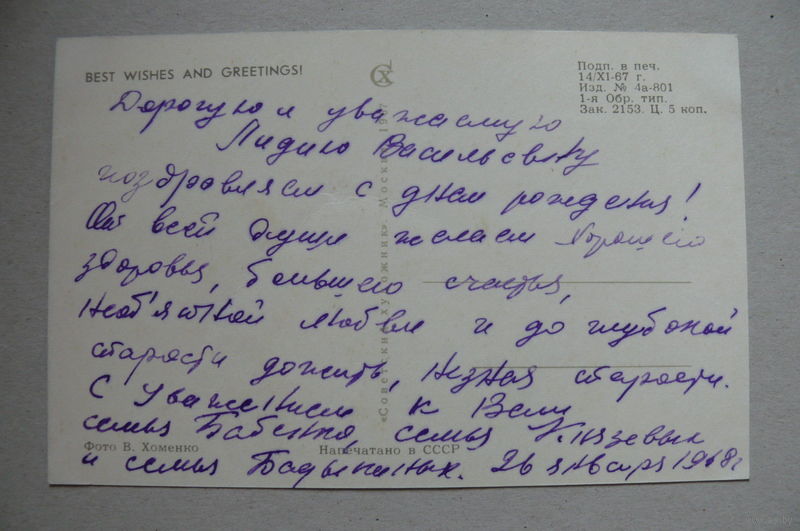 BEST WISHES AND GREETINGS!
Подп. в печ.
14/XI-67 г.
Изд. № 4а-801
1-я Обр. тип.
Зак. 2153. Ц. 5 коп.
Дорогую и уважаемую
Лидию Васильевну
поздравляем с днем рождения!
От всей души желаем хорошего
здоровья, большего счастья,
необ'ятной любви и до глубокой
старости дожить, не зная старости.
С уважением к Вам
семья Бабенко, семья Князевых
и семья 26 января 1968г
«Советский художник» Москва 1967
Фото В. Хоменко
Напечатано в СССР